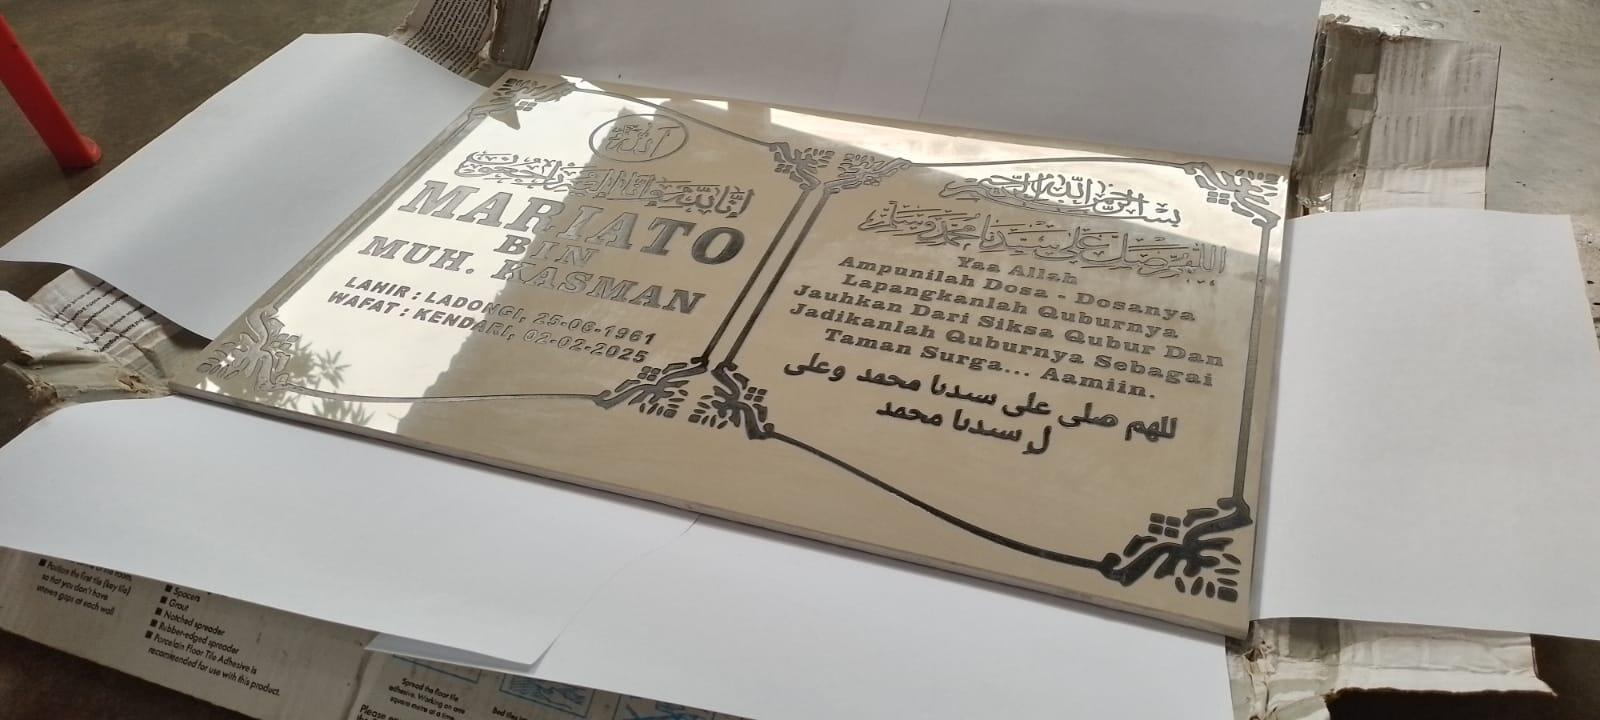 الله
إنا لله وإنا إليه راجعون
MARIATO
BIN
MUH. KASMAN
LAHIR : LADONGI, 25-06-1961
WAFAT : KENDARI, 02-02-2025
بسم الله الرحمن الرحيم
اللهم صل على سيدنا محمد وسلم
Yaa Allah
Ampunilah Dosa - Dosanya
Lapangkanlah Quburnya
Jauhkan Dari Siksa Qubur Dan
Jadikanlah Quburnya Sebagai
Taman Surga... Aamiin.
للهم صلى على سيدنا محمد وعلى
ل سيدنا محمد
Position the first tile (key tile)
so that you don't have
uneven gaps at each wall
Spacers
Grout
Notched spreader
Rubber-edged spreader
Porcelain Floor Tile Adhesive is
recommended for use with this product.
Spread the floor tile
adhesive. Working on one
square metre at a time
Please